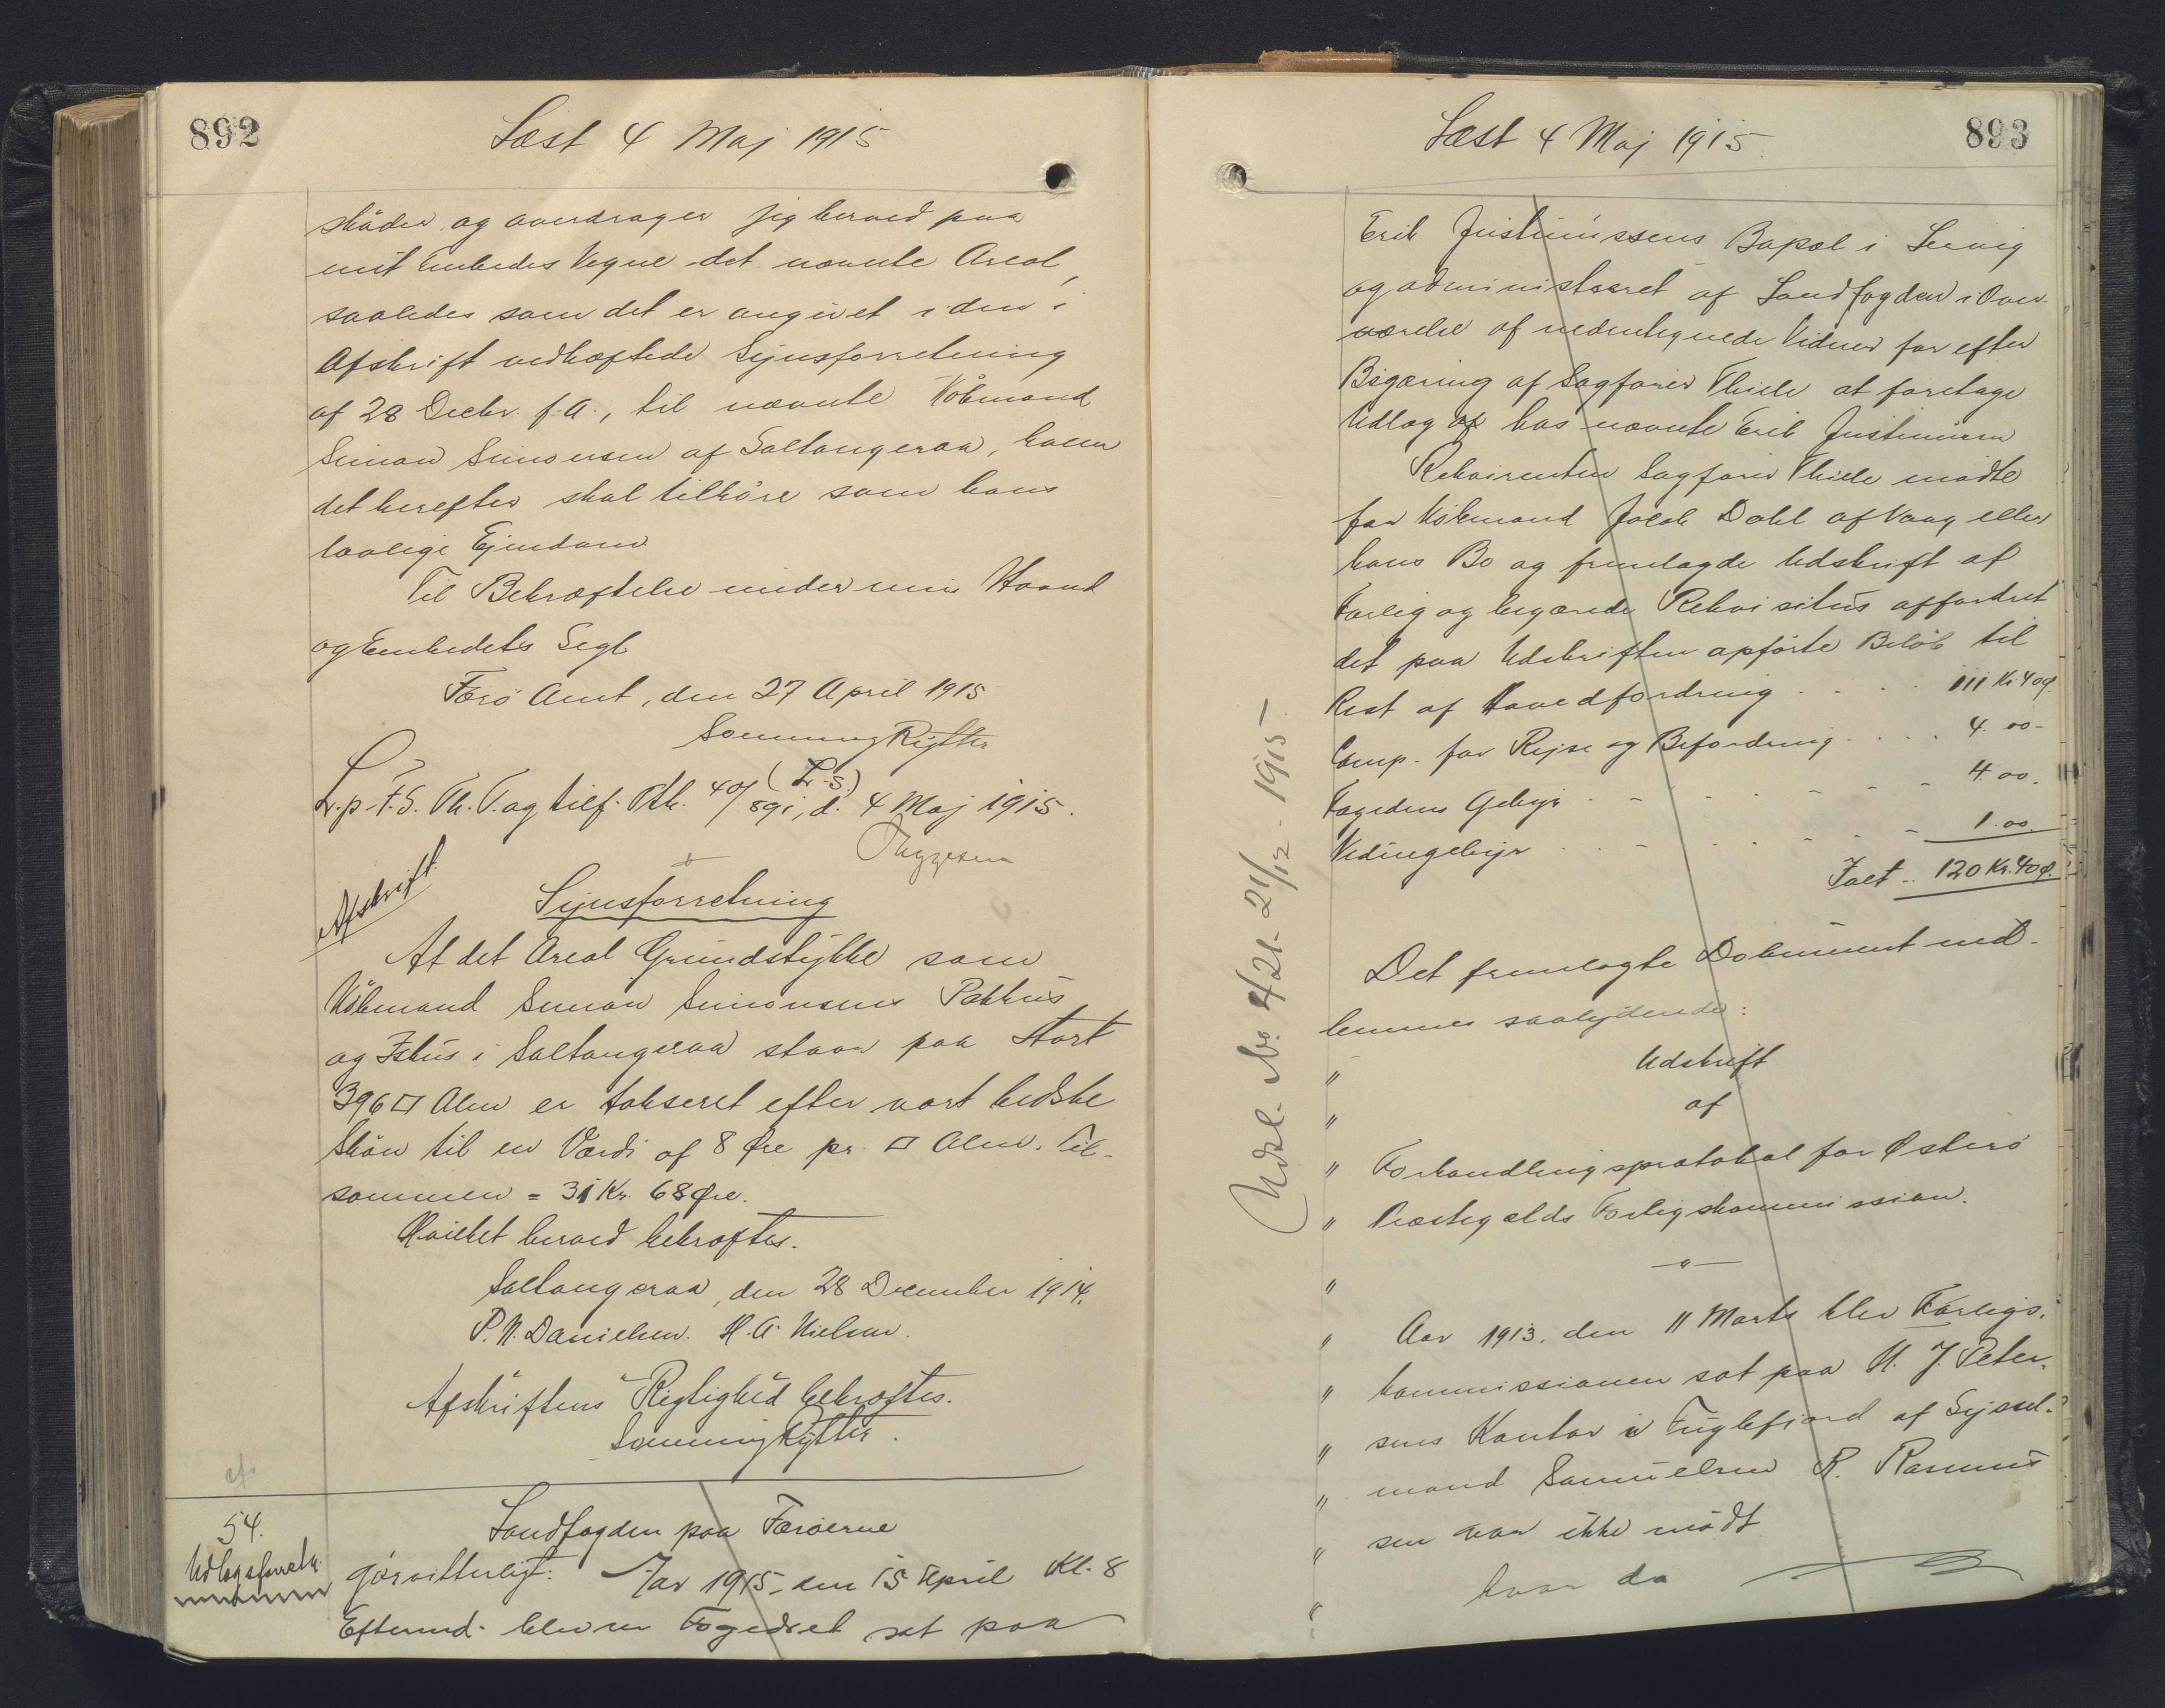 892
Læst 4 Maj 1915
skøder og overdrager jeg herved paa
mit Embedes Vegne det nævnte Areal,
saaledes som det er angivet i den i
Afskrift vedhæftede Synsforretning
af 28 Decbr. f.A., til nævnte Købmand
Simon Simonsen af Saltangeraa, hvem
det herefter skal tilhøre som hans
lovlige Ejendom.
Til Bekræftelse under min Haand
og Embedets Segl
Færø Amt, den 27 April 1915
Sommung Rytter
(L.S.)
L.p. F.S. Th. T. og tilf. Ptk. 40/891, d. 4 Maj 1915.
Thygesen
Afskrift.
Synsforretning
At det Areal Grundstykke som
Købmand Simon Simonsens Pakhus
og Ishus i Saltangeraa staar paa Stort
396 □ Alen er takseret efter vort bedste
Skøn til en Værdi af 8 Øre pr. □ Alen. Til-
sammen = 31 Kr. 68 Øre.
Hvilket herved bekræftes.
Saltangeraa, den 28 December 1914.
P.N. Danielsen. H.A. Nielsen.
Afskriftens Rigtighed bekræftes.
Sommung Rytter.
54.
Udlægsforretn.
Landfogden paa Færøerne
Gør vitterligt: Aar 1915, den 15 April Kl. 8
Eftermd. blev en Fogedret sat paa
Læst 4 Maj 1915.
893
Erik Justinussens Bopæl i Lervig
og administreret af Landfogden i Over-
værelse af nedentegnede Vidner for efter
Begæring af Sagfører Thiele at foretage
Udlæg hos nævnte Erik Justinussen
Rekvirenten Sagfører Thiele mødte
for Købmand Jacob Dahl af Vaag eller
hans Bo og fremlagde Udskrift af
Forlig og begærede Rekvisitus affordret
det paa Udskriften opførte Beløb til
Rest af Hovedfordring . . . . 111 Kr. 40 Ø.
Comp. for Rejse og Befordring . . . . 4.00 -
Fogedens Gebyr . - - - - - 4.00.
Vidnegebyr . . - . . - - 1.00.
Ialt .. 120 Kr. 40 Ø.
Det fremlagte Dokument ind-
lemmes saalydende:
" Udskrift
" af
" Forhandlingsprotokol for Østerø
" Præstegælds Forligskommission.
"
" Aar 1913, den 11 Marts blev Forligs-
" kommissionen sat paa M. J. Peter-
" sens Kontor i Fuglefjord af Syssel-
" mand Samuelsen R. Rasmus
" sen var ikke mødt
" hvor da
Udsl. No. 421 - 21/12 - 1915